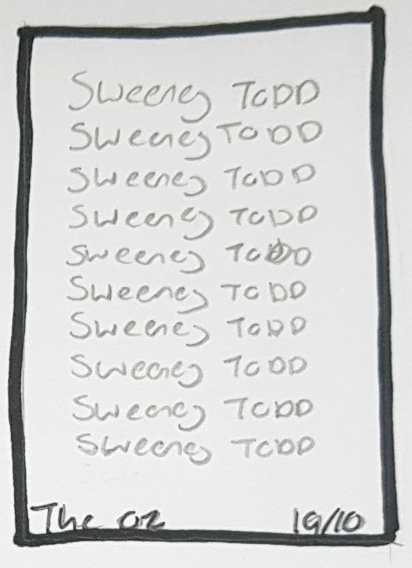 Sweeney TODD
Sweeney TODD
Sweeney TODD
Sweeney TODD
Sweeney TODD
Sweeney TODD
Sweeney TODD
Sweeney TODD
Sweeney TODD
Sweeney TODD
The 02 19/10